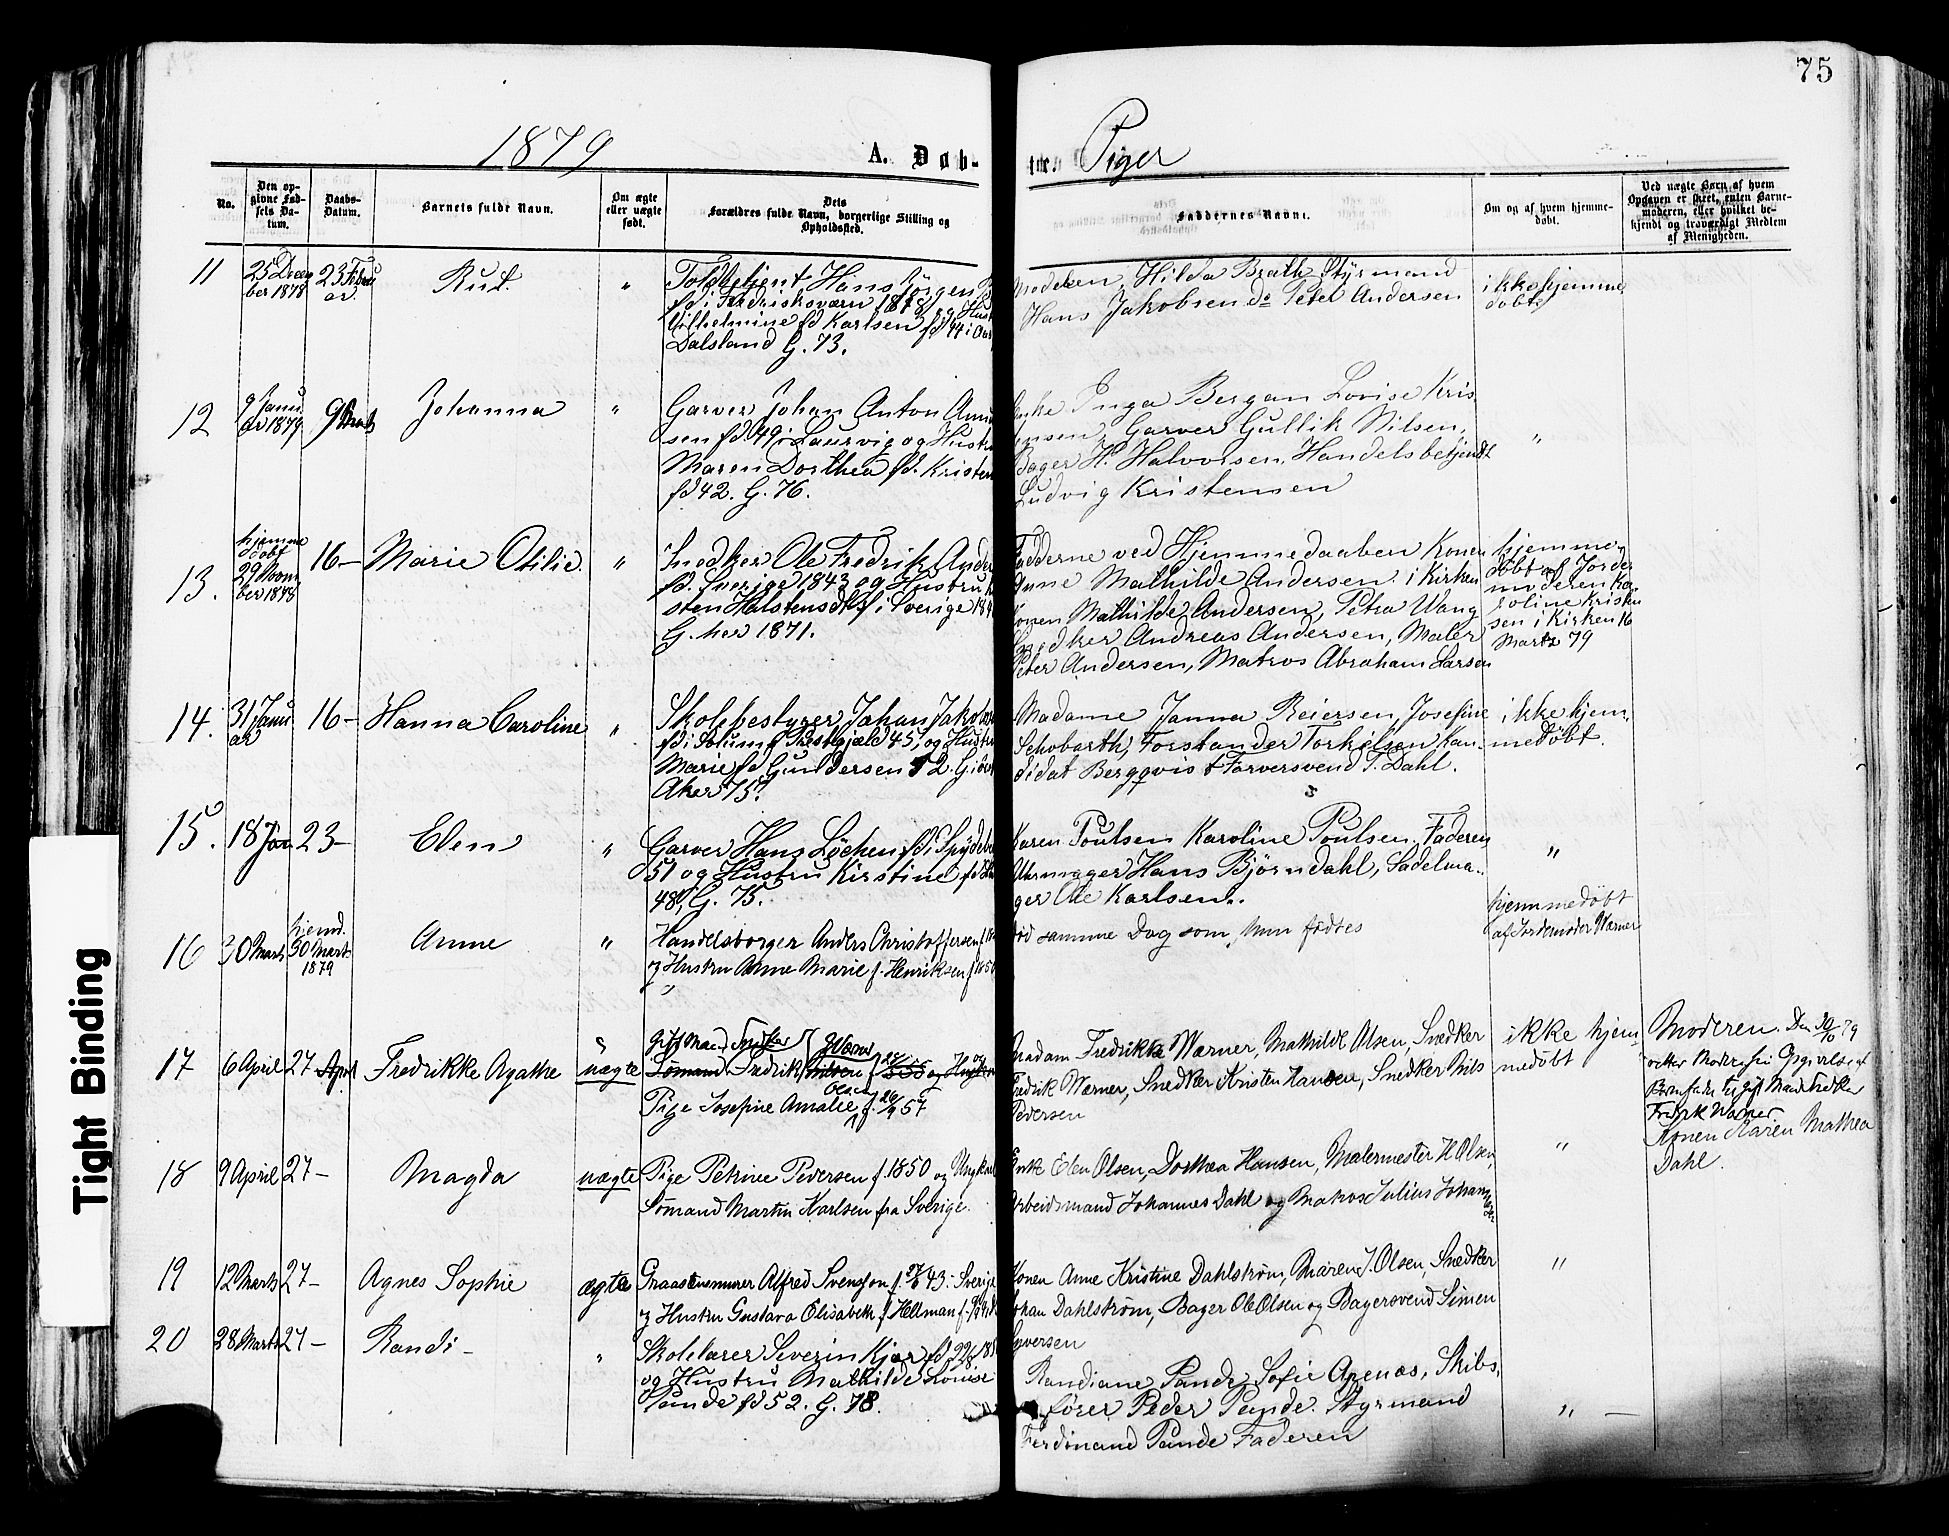 75
1879
A. Døb-
te. Piger
No.
Den op-
givne Fød-
sels Da-
tum.
Daabs-
Datum.
Barnets fulde Navn.
Om ægte
eller uægte
født.
Dets
Forældres fulde Navn, borgerlige Stilling og
Opholdssted.
Faddernes Navne.
Om og af hvem hjemme-
døbt.
Ved uægte Børn af hvem
Opgaven er skeet, enten Barne-
moderen, eller hvilket be-
kjendt og troværdigt Medlem
af Menigheden.
11
25 Decem
ber 1878
23 Febru
ar.
Rut.
"
Toldbetjent Hans Jørgen
fd i Fredriksværn 18
Vilhelmine fd Karlsen fd 44 i
Dalsland G. 73.
Moderen, Hilda Brath Styrmand
Hans Jakobsen do Peter Andersen
ikke hjemme
døbt
12
9 Janu
ar 1879
9 Marts
Johanna
"
Garver Johan Anton Amu
sen fd 49 i Laurvig og Hustru
Maren Dorthea fd. Kristen
fd 42. G. 76.
Enke Inga Bergan Lovise Kris
ensen, Garver Gullik Nilsen,
Bager H. Halvorsen, Handelsbetjent
Ludvig Kristensen
"
13.
hjemme
døbt
29 Novem
ber 1878
16-
Marie Otilie.
"
Snedker Ole Fredrik Ander
fd. Sverige 1843 og Hustru K
sten Halstensdtr f i Sverige 184
G. her 1871.
Fadderne ved Hjemmedaaben Konen
Anne Mathilde Andersen. i Kirken
Konen Mathilde Andersen, Petra Wang
Snedker Andreas Andersen, Maler
Peter Andersen, Matros Abraham Larsen
hjemme
døbt af Jorde
moderen Ka
roline Kristen
sen i Kirken 16
Marts 79
14.
31 Janu
ar
16-
Hanna Caroline
"
Skolebestyrer Johan Jakobsen
fd i Solum Prestgjæld 45, og Hustru
Marie fd Gundersen 52. G. i
Aker 75.
Madame Janna Reiersen, Josefine
Schobarth, Forstander Torkelsen Kan-
didat Bergqvist Farversvend T. Dahl.
ikke hjem-
medøbt.
15.
18 Jan
23-
Elen
"
Garver Hans Løchen fd i Spydeb
51 og Hustru Kirstine fd
48, G. 75.
Karen Poulsen Karoline Poulsen, Faderen
Uhrmager Hans Bjørndahl, Sadelma-
ger Ole Karlsen.
"
16
30 Marts
hjemd.
30 Marts
1879
Anne
"
Handelsborger Anders Christoffersen f
og Hustru Anne Marie f. Henriksen f. 1850
"
død samme Dag som hun fødtes
hjemmedøbt
af Jordemoder Warner
17
6 April
27 April
Fredrikke Agathe
"
uægte
Gift Mand Snedker
Sømand Fredrik Nilsen Werner f. 55 og Hustru
Pige Josefine Amalie Olsen f. 26/9 57
Madam Fredrikke Warner, Mathilde Olsen, Snedker
Fredrik Warner, Snedker Kristen Hansen, Snedker Nils
Pedersen
ikke hjem-
medøbt
Moderen. Den 30/10 79
retter Moder sin Opgivelse af
Barnefader til gift Mand Snedker
Fredrik Warner.
18
9 April
27-
Magda
uægte
Pige Petrine Pedersen f. 1850 og Ungkarl
Sømand Martin Karlsen fra Sverige.
Enke Elen Olsen, Dorthea Hansen, Malermester H Olsen,
Arbeidsmand Johannes Dahl og Matros Julius Johannesen
"
Konen Karen Mathea
Dahl.
19
12 Marts
27-
Agnes Sophie
ægte
Graastensmurer Alfred Svensson f. 43 - Sverige
og Hustru Gustava Elisabeth f. Hellman f.
Konen Anne Kristine Dahlstrøm, Maren J. Olsen, Snedker
Johan Dahlstrøm, Bager Ole Olsen og Bagersvend Simen
Syversen
"
20
28 Marts
27-
Randi-
"
Skolelærer Severin Kjær fd 22/8
og Hustru Mathilde Lovise
Pande fd 52. G. 78.
Randiane Pande, Sofie Arenas, Skibs-
fører Peder Pande. Styrmand
Ferdinand Pande Faderen
" -
Tight Binding